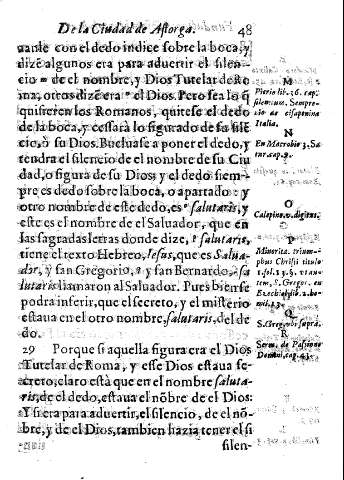 De la Ciudad de Astorga. 48
uanle con el dedo indice sobre la boca, y
dizē algunos era para aduertir el silen-
cio m de el nombre, y Dios Tutelar de Ro
ma, otros dizē era n el Dios. Pero sea lo q̄
quisieren los Romanos, quitese el dedo
de la boca, y cessarà lo figurado de su silē
cio, ò su Dios. Bueluase a poner el dedo, y
tendra el silencio de el nombre de su Ciu
dad, o figura de su Dios: y el dedo siem-
pre es dedo sobre la boca, o apartado: y
otro nombre de este dedo, es o salutaris, y
este es el nombre de el Saluador, que en
las sagradas letras donde dize, p salutaris,
tiene el texto Hebreo, Iesus, que es Salua
dor, y san Gregorio, q y san Bernardo, r sa
lutaris llamaron al Saluador. Pues bien se
podra inferir, que el secreto, y el misterio
estaua en el otro nombre, salutaris, del de
do.
29 Porque si aquella figura era el Dios
Tutelar de Roma, y esse Dios estaua se-
creto, claro està que en el nombre saluta-
ris, de el dedo, estaua el nōbre de el Dios:
Y si era para aduertir, el silencio, de el nō-
bre, y de el Dios, tambien hazia tener el si
silen-
M
Pierio lib. 36. cap.
silentium. Sempre-
nio de
Italia.
N
En Macrobio 3. Sa
tur cap. 9.
O
Calepino. v. digitus.
P
Minorita. trium-
phus Christi titulo
S. Gregor. eu
Ezechiel
Q
S. Gregor. supra.
R
Serm. de Passione
Domini, cap. 43.